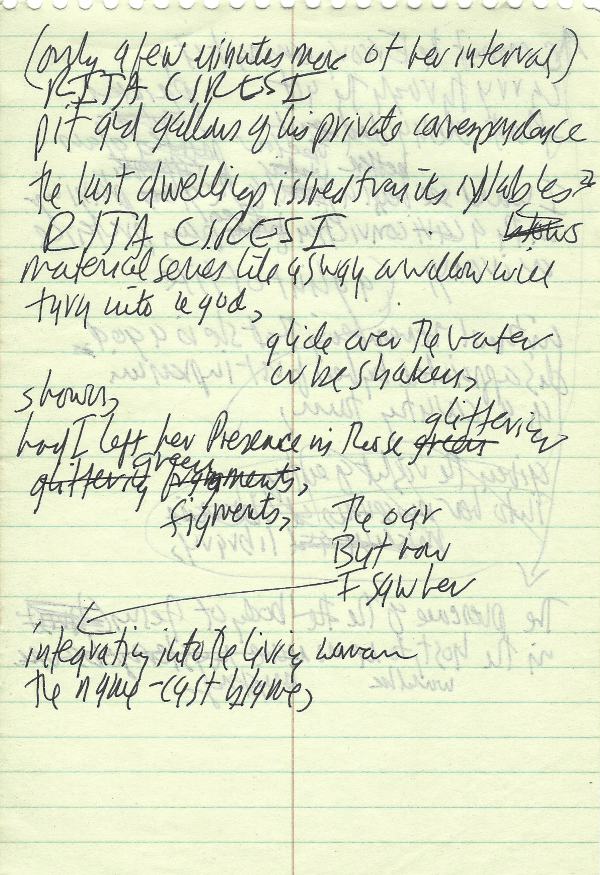 (only a few minutes more of her interval)
RITA CIRESI
pit and gallows of his private correspondence
the last dwellings issued from its syllables
RITA CIRESI
material series like a swallow will
turn into a god,
glide over the water
or be shaken,
shown,
glittering
had I left her Presence in those green
green
glittering fragments,
figments,
The oar
But now
I saw her
integrating into the living woman
the name-cast blame,